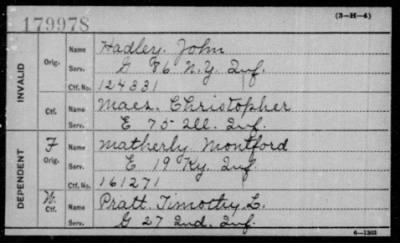 179978
(3-H-4)
INVALID
Orig. Name Hadley. John
Serv. G 86 N.Y. Inf.
Ctf. No. 124331
Ctf. Name Maes. Christopher
Serv. E 75 Ill. Inf.
DEPENDENT
F Orig. Name Matherly Montford
Serv. E 19 Ky. Inf.
Ctf. No. 161271
W. Ctf. Name Pratt. Timothy L.
Serv. G 27 Ind. Inf.
6-1303